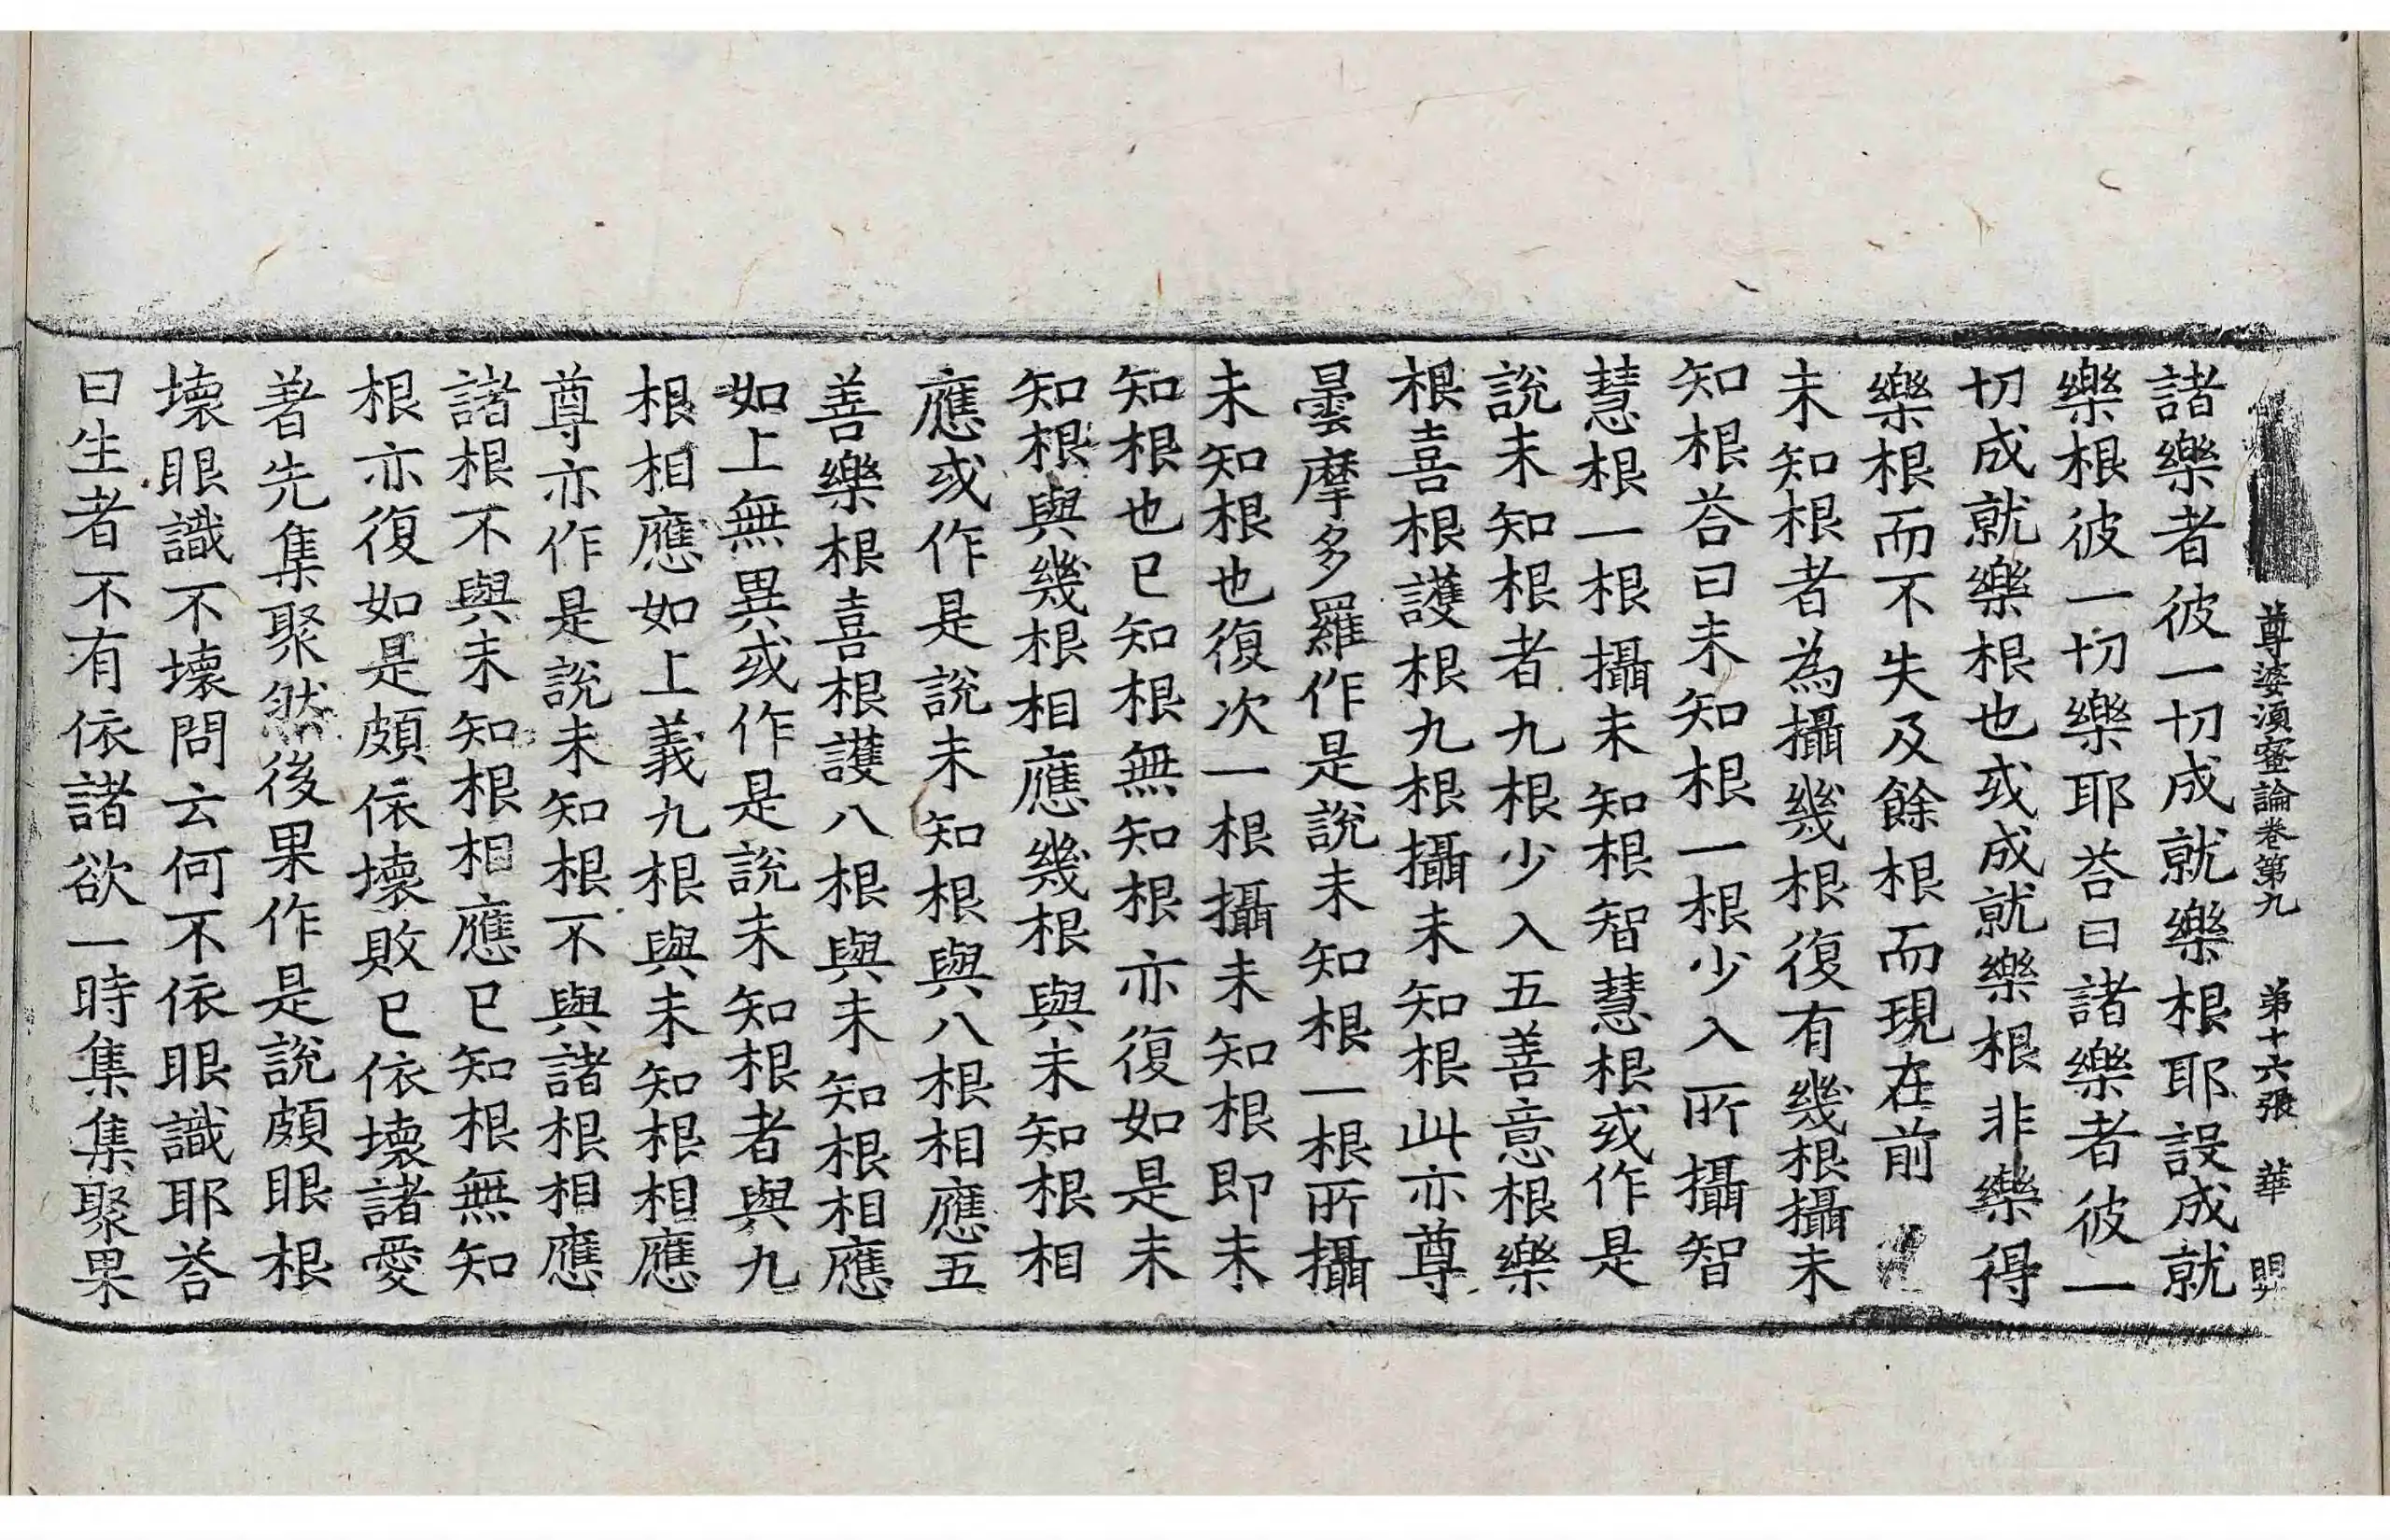 尊婆湏蜜論卷第九 第十六張 華
諸樂者彼一切成就樂根耶設成就
樂根彼一切樂耶荅曰諸樂者彼一
切成就樂根也或成就樂根非樂得
樂根而不失及餘根而現在前
未知根者為攝幾根復有幾根攝未
知根荅曰未知根一根少入所攝智
慧根一根攝未知根智慧根或作是
說未知根者九根少入五善意根樂
根喜根護根九根攝未知根此亦尊
曇摩多羅作是說未知根一根所攝
未知根也復次一根攝未知根即未
知根也已知根無知根亦復如是未
知根與幾根相應幾根與未知根相
應或作是說未知根與八根相應五
善樂根喜根護八根與未知根相應
如上無異或作是說未知根者與九
根相應如上義九根與未知根相應
尊亦作是說未知根不與諸根相應
諸根不與未知根相應已知根無知
根亦復如是頗依壞敗已依壞諸愛
著先集聚然後果作是說頗眼根
壞眼識不壞問云何不依眼識耶荅
曰生者不有依諸欲一時集集聚果